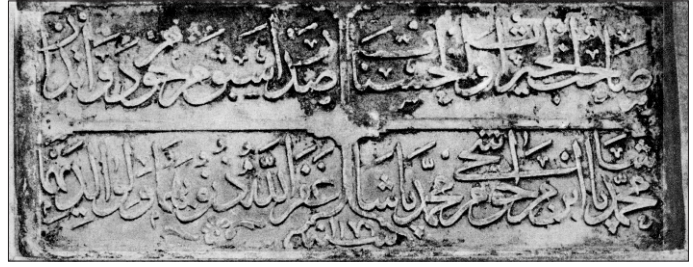 صاحب الخيرات والحسنات صدر اسبق مرحوم
محمد پاشا ابن مرحوم محمد پاشا غفر الله ذنوبهما ولوالديهما